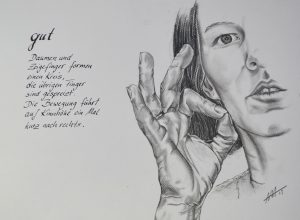 gut
Daumen und
Zeigefinger formen
einen Kreis,
die übrigen Finger
sind gespreizt.
Die Bewegung führt
auf Kinnhöhe ein Mal
kurz nach rechts.